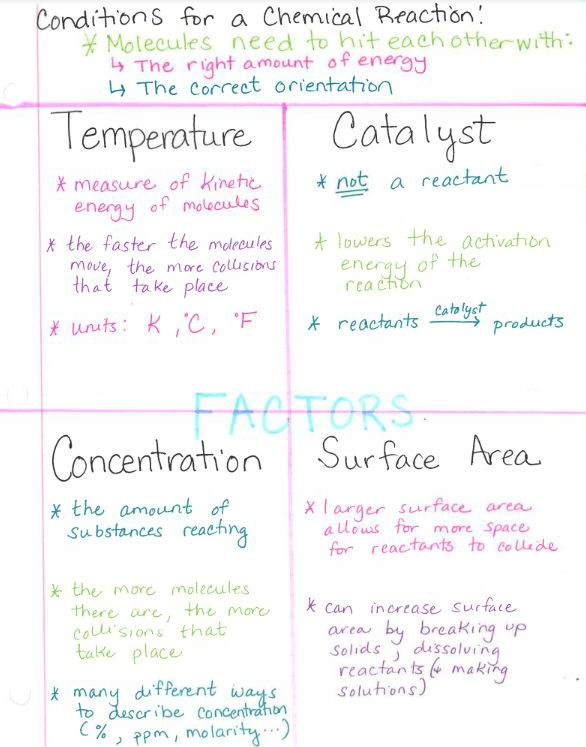 Conditions for a Chemical Reaction:
* Molecules need to hit each other with:
↳ The right amount of energy
↳ The correct orientation
Temperature
* measure of kinetic
energy of molecules
* the faster the molecules
move, the more collisions
that take place
* units: K, °C, °F
Catalyst
* not a reactant
* lowers the activation
energy of the
reaction
* reactants catalyst → products
FACTORS
Concentration
* the amount of
substances reacting
* the more molecules
there are, the more
collisions that
take place
* many different ways
to describe concentration
(%, ppm, molarity...)
Surface Area
* larger surface area
allows for more space
for reactants to collide
* can increase surface
area by breaking up
solids, dissolving
reactants (+ making
solutions)